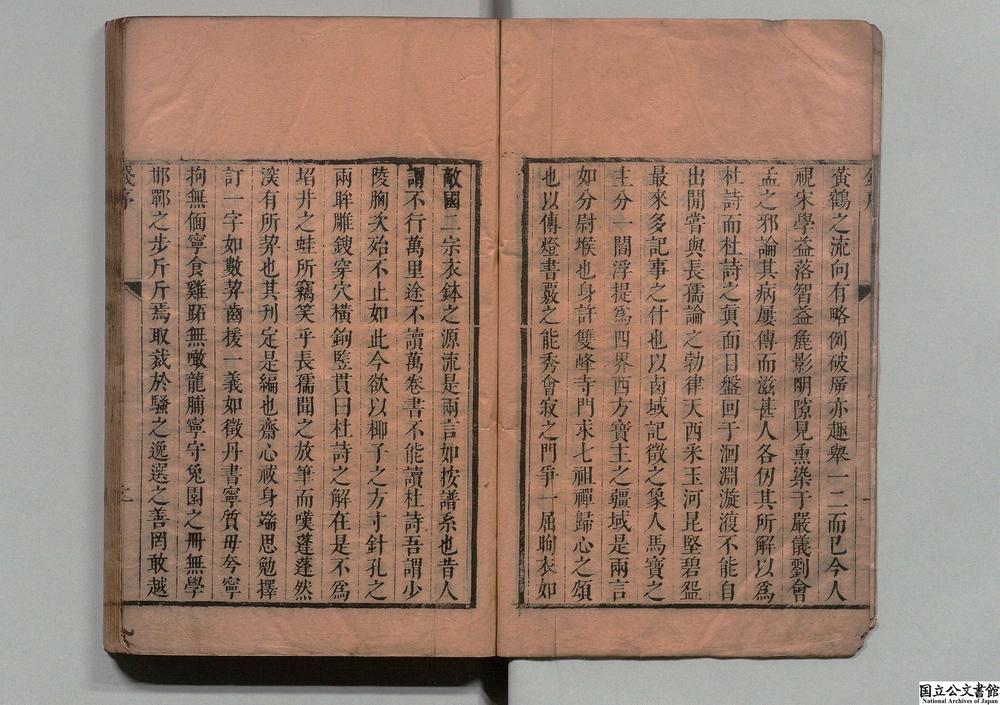 黃鶴之流向有略例破斥亦趣舉一二而已今人
視宋學益落智益麄影明隙見熏染于嚴儀劉會
孟之邪論其病屢傳而滋甚人各仞其所解以爲
杜詩而杜詩之眞面目盤回于洄淵漩澓不能自
出間嘗與長孺論之勃律天西采玉河昆堅碧盌
最來多記事之什也以西域記徵之象人馬寶之
主分一閻浮提爲四界西方寶主之疆域是兩言
如分尉堠也身許雙峰寺門求七祖禪歸心之頌
也以傳燈書覈之能秀會寂之門爭一屈眴衣如
敵國二宗衣鉢之源流是兩言如按譜系也昔人
謂不行萬里途不讀萬卷書不能讀杜詩吾謂少
陵胸次殆不止如此今欲以椰子之方寸針孔之
兩眸雕鎪穿穴橫鉤竪貫曰杜詩之解在是不爲
埳井之蛙所竊笑乎長孺聞之放筆而嘆蓬蓬然
深有所契也其刋定是編也齋心祓身端思勉擇
訂一字如數契齒援一義如徵丹書寧質毋夸寧
拘無偭寧食雞跖無噉龍脯寧守兔園之冊無學
邯鄲之步斤斤焉取裁於騷之逸選之善罔敢越
箋序
二
国立公文書館
National Archives of Japan